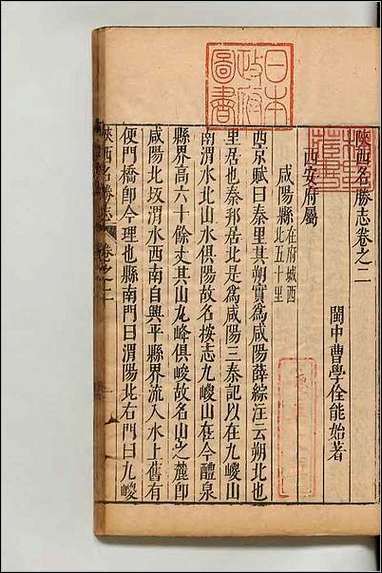 陝西名勝志卷之二
閩中曹學佺能始著
西安府屬
咸陽縣在府城西北五十里
西京賦曰秦里其朔實爲咸陽薛綜注云朔北也
里居也秦邦居北是爲咸陽三秦記以在九嵕山
南渭水北山水俱陽故名按志九嵕山在今醴泉
縣界高六十餘丈其山九峰俱峻故名山之麓卽
咸陽北坂渭水西南自興平縣界流入水上舊有
便門橋卽今理也縣南門曰渭陽北右門曰九嵕
陝西名勝志
卷之二
日本
政府
圖書